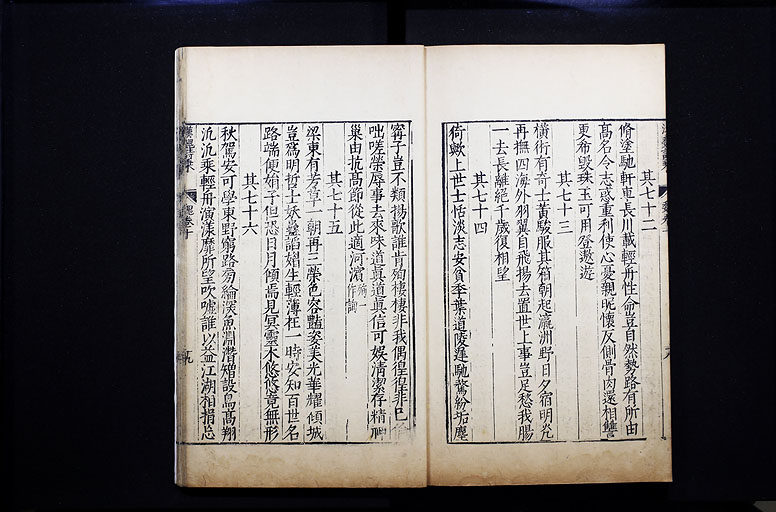 其七十二
脩塗馳軒車長川載輕舟性命豈自然勢路有所由
高名令志惑重利使心憂親昵懷反側骨肉還相讐
更希毀珠玉可用登遨遊
其七十三
橫術有奇士黃駿服其箱朝起瀛洲野日夕宿明光
再撫四海外羽翼自飛揚去置世上事豈足愁我腸
一去長離絕千歲復相望
其七十四
猗歟上世士恬淡志安貧季葉道陵遲馳騖紛垢塵
甯子豈不類揚歌誰肯殉棲棲非我偶徨徨非己倫
咄嗟榮辱事去來味道眞道眞信可娛清潔存精神
巢由抗高節從此適河濱
其七十五
梁東有芳草一朝再三榮色容豔姿美光華耀傾城
豈爲明哲士妖蠱諂媚生輕薄在一時安知百世名
路端便娟子但恐日月傾焉見冥靈木悠悠竟無形
其七十六
秋駕安可學東野窮路旁綸深魚淵潛矰設鳥高翔
汎汎乘輕舟演漾靡所望吹噓誰以益江湖相捐忘